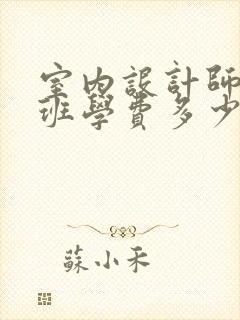 室內設計師
班學費多少
蘇小禾